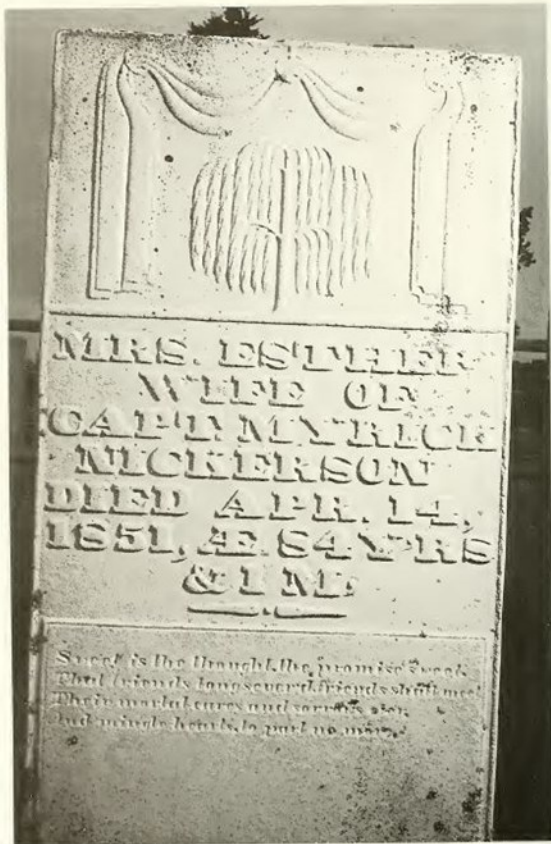 MRS. ESTHER
WIFE OF
CAPT. MYRICK
NICKERSON
DIED APR. 14,
1851, Æ. 84 Y'RS
& 1 M.
Sweet is the thought, the promise sweet
That friends, long sever'd friends shall meet
Their mortal cares and sorrows o'er
And mingle hearts, to part no more.